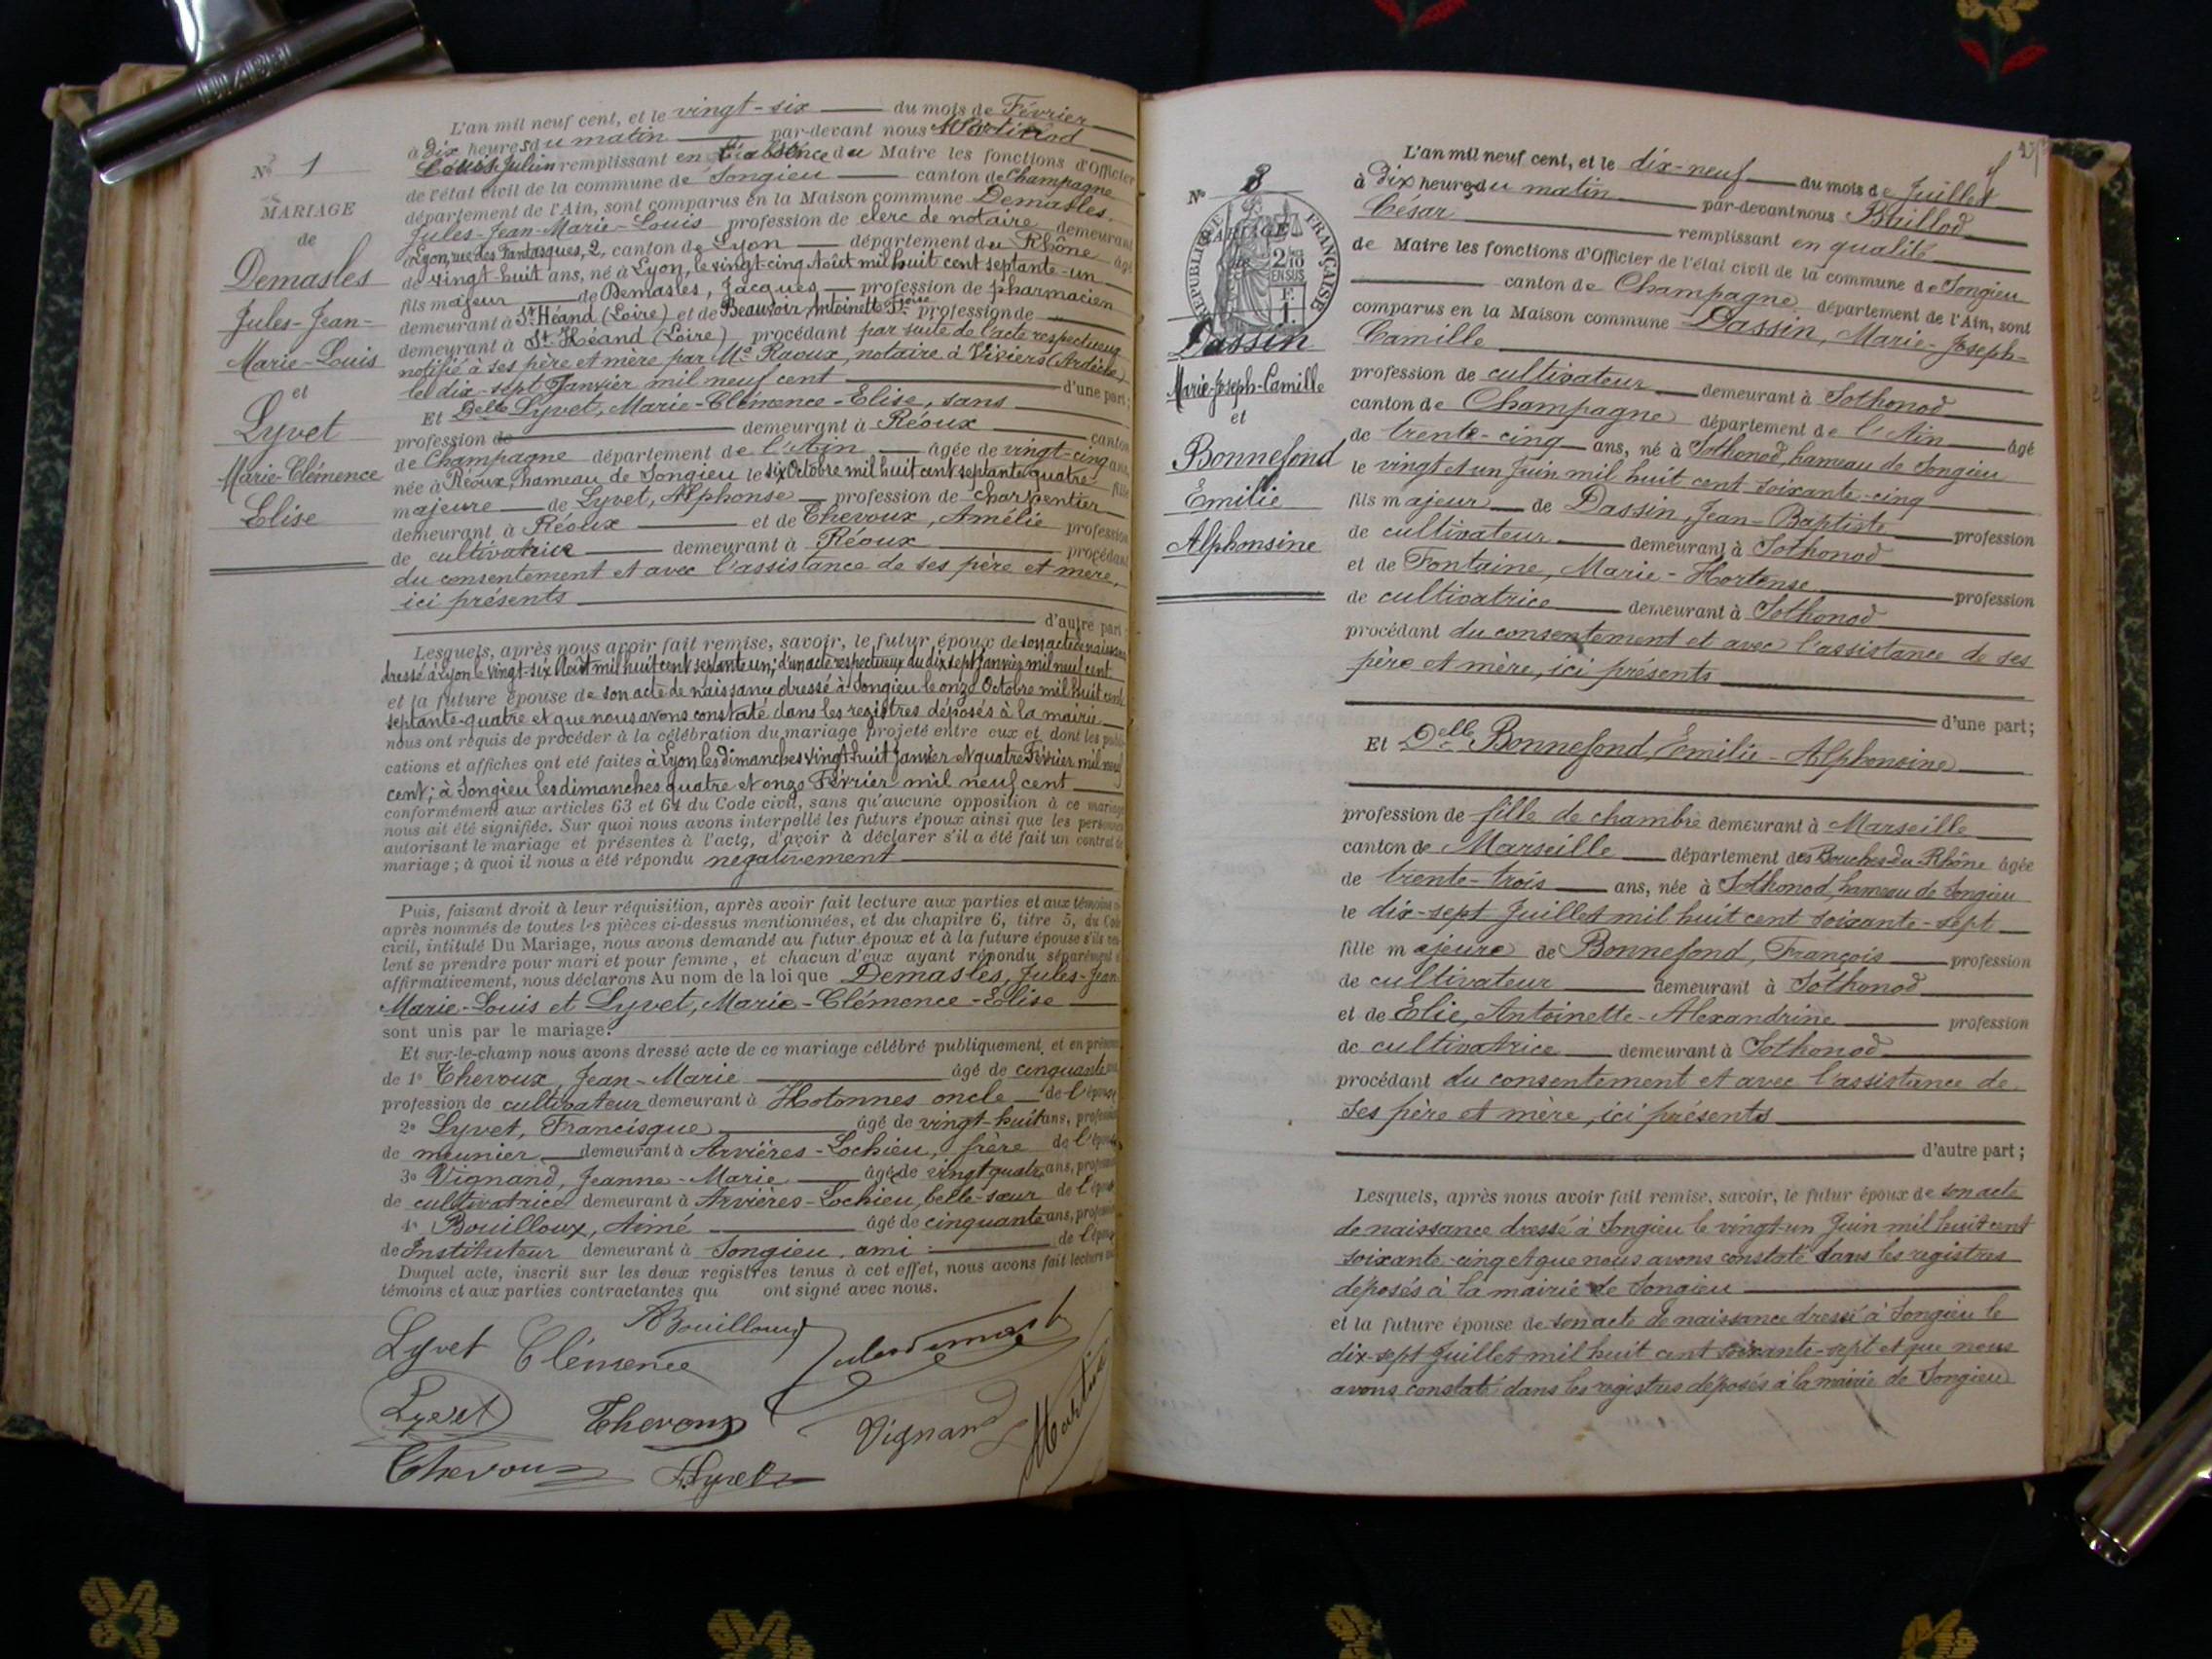 N° 1
MARIAGE
de
Demasles
Jules-Jean-
Marie-Louis
et
Lyvet
Marie-Clémence
Elise
L'an mil neuf cent, et le vingt-six du mois de Février
à dix heures du matin par-devant nous Martinod
Louis Julien remplissant en l'absence du Maire les fonctions d'Officier
de l'état civil de la commune de Songieu canton de Champagne
département de l'Ain, sont comparus en la Maison commune Demasles,
Jules-Jean-Marie-Louis profession de clerc de notaire demeurant
à Lyon, rue des Fantasques, 2, canton de Lyon département du Rhône âgé
de vingt-huit ans, né à Lyon, le vingt-cinq Août mil huit cent septante-un
fils majeur de Demasles, Jacques profession de pharmacien
demeurant à St Héand (Loire) et de Beauvoir Antoinette Fçoise profession de
demeurant à St Héand (Loire) procédant par suite de l'acte respectueux
notifié à ses père et mère par Me Raoux, notaire à Viviers (Ardèche)
le dix-sept Janvier mil neuf cent d'une part;
Et Delle Lyvet, Marie-Clémence-Elise, sans
profession de demeurant à Réoux canton
de Champagne département de l'Ain âgée de vingt-cinq ans,
née à Réoux, hameau de Songieu le six Octobre mil huit cent septante quatre fille
majeure de Lyvet, Alphonse profession de charpentier
demeurant à Réoux et de Thevoux, Amélie profession
de cultivatrice demeurant à Réoux procédant
du consentement et avec l'assistance de ses père et mère,
ici présents
d'autre part
Lesquels, après nous avoir fait remise, savoir, le futur époux de son acte de naissance
dressé à Lyon le vingt-six Août mil huit cent septante un; d'un acte respectueux du dix sept Janvier mil neuf cent
et la future épouse de son acte de naissance dressé à Songieu le onze Octobre mil huit cent
septante-quatre et que nous avons constaté dans les registres déposés à la mairie
nous ont requis de procéder à la célébration du mariage projeté entre eux et dont les publi-
cations et affiches ont été faites à Lyon les dimanches vingt huit Janvier et quatre Février mil neuf
cent; à Songieu les dimanches quatre et onze Février mil neuf cent
conformément aux articles 63 et 64 du Code civil, sans qu'aucune opposition à ce mariage
nous ait été signifiée. Sur quoi nous avons interpellé les futurs époux ainsi que les personnes
autorisant le mariage et présentes à l'acte, d'avoir à déclarer s'il a été fait un contrat de
mariage; à quoi il nous a été répondu négativement
Puis, faisant droit à leur réquisition, après avoir fait lecture aux parties et aux témoins ci-
après nommés de toutes les pièces ci-dessus mentionnées, et du chapitre 6, titre 5, du Code
civil, intitulé Du Mariage, nous avons demandé au futur époux et à la future épouse s'ils veu-
lent se prendre pour mari et pour femme, et chacun d'eux ayant répondu séparément et
affirmativement, nous déclarons Au nom de la loi que Demasles, Jules-Jean
Marie-Louis et Lyvet, Marie-Clémence-Elise
sont unis par le mariage.
Et sur-le-champ nous avons dressé acte de ce mariage célébré publiquement, et en présence
de 1° Thevoux, Jean-Marie âgé de cinquante ans
profession de cultivateur demeurant à Hotonnes oncle de l'épouse
2° Lyvet, Francisque âgé de vingt-huit ans, profession
de meunier demeurant à Arvières-Lochieu, frère de l'épouse
3° Vignand, Jeanne-Marie âgé de vingt quatre ans, profession
de cultivatrice demeurant à Arvières-Lochieu, belle-sœur de l'épouse
4° Bouilloux, Aimé âgé de cinquante ans, profession
de Instituteur demeurant à Songieu, ami de l'épouse
Duquel acte, inscrit sur les deux registres tenus à cet effet, nous avons fait lecture aux
témoins et aux parties contractantes qui ont signé avec nous.
ABouilloux
Lyvet Clémence Jules Demasles
Lyvet Thevoux Vignand Martinod
Thevoux F. Lyvet
N° 3
RÉPUBLIQUE FRANÇAISE
MARIAGE
de
2/10
EN SUS
F.
1.
Dassin
Marie-Joseph-Camille
et
Bonnefond
Emilie
Alphonsine
L'an mil neuf cent, et le dix-neuf du mois de Juillet
à dix heures du matin par-devant nous Baillod
César remplissant en qualité
de Maire les fonctions d'Officier de l'état civil de la commune de Songieu
canton de Champagne département de l'Ain, sont
comparus en la Maison commune Dassin, Marie-Joseph-
Camille
profession de cultivateur demeurant à Sothonod
canton de Champagne département de l'Ain âgé
de trente-cinq ans, né à Sothonod, hameau de Songieu
le vingt et un Juin mil huit cent soixante-cinq
fils majeur de Dassin, Jean-Baptiste profession
de cultivateur demeurant à Sothonod
et de Fontaine, Marie-Hortense profession
de cultivatrice demeurant à Sothonod
procédant du consentement et avec l'assistance de ses
père et mère, ici présents
d'une part;
Et Delle Bonnefond, Emilie-Alphonsine
profession de fille de chambre demeurant à Marseille
canton de Marseille département des Bouches-du-Rhône âgée
de trente-trois ans, née à Sothonod, hameau de Songieu
le dix-sept Juillet mil huit cent soixante-sept
fille majeure de Bonnefond, François profession
de cultivateur demeurant à Sothonod
et de Elie, Antoinette-Alexandrine profession
de cultivatrice demeurant à Sothonod
procédant du consentement et avec l'assistance de
ses père et mère, ici présents
d'autre part;
Lesquels, après nous avoir fait remise, savoir, le futur époux de son acte
de naissance dressé à Songieu le vingt-un Juin mil huit cent
soixante-cinq et que nous avons constaté dans les registres
déposés à la mairie de Songieu
et la future épouse de son acte de naissance dressé à Songieu le
dix-sept Juillet mil huit cent soixante-sept et que nous
avons constaté dans les registres déposés à la mairie de Songieu